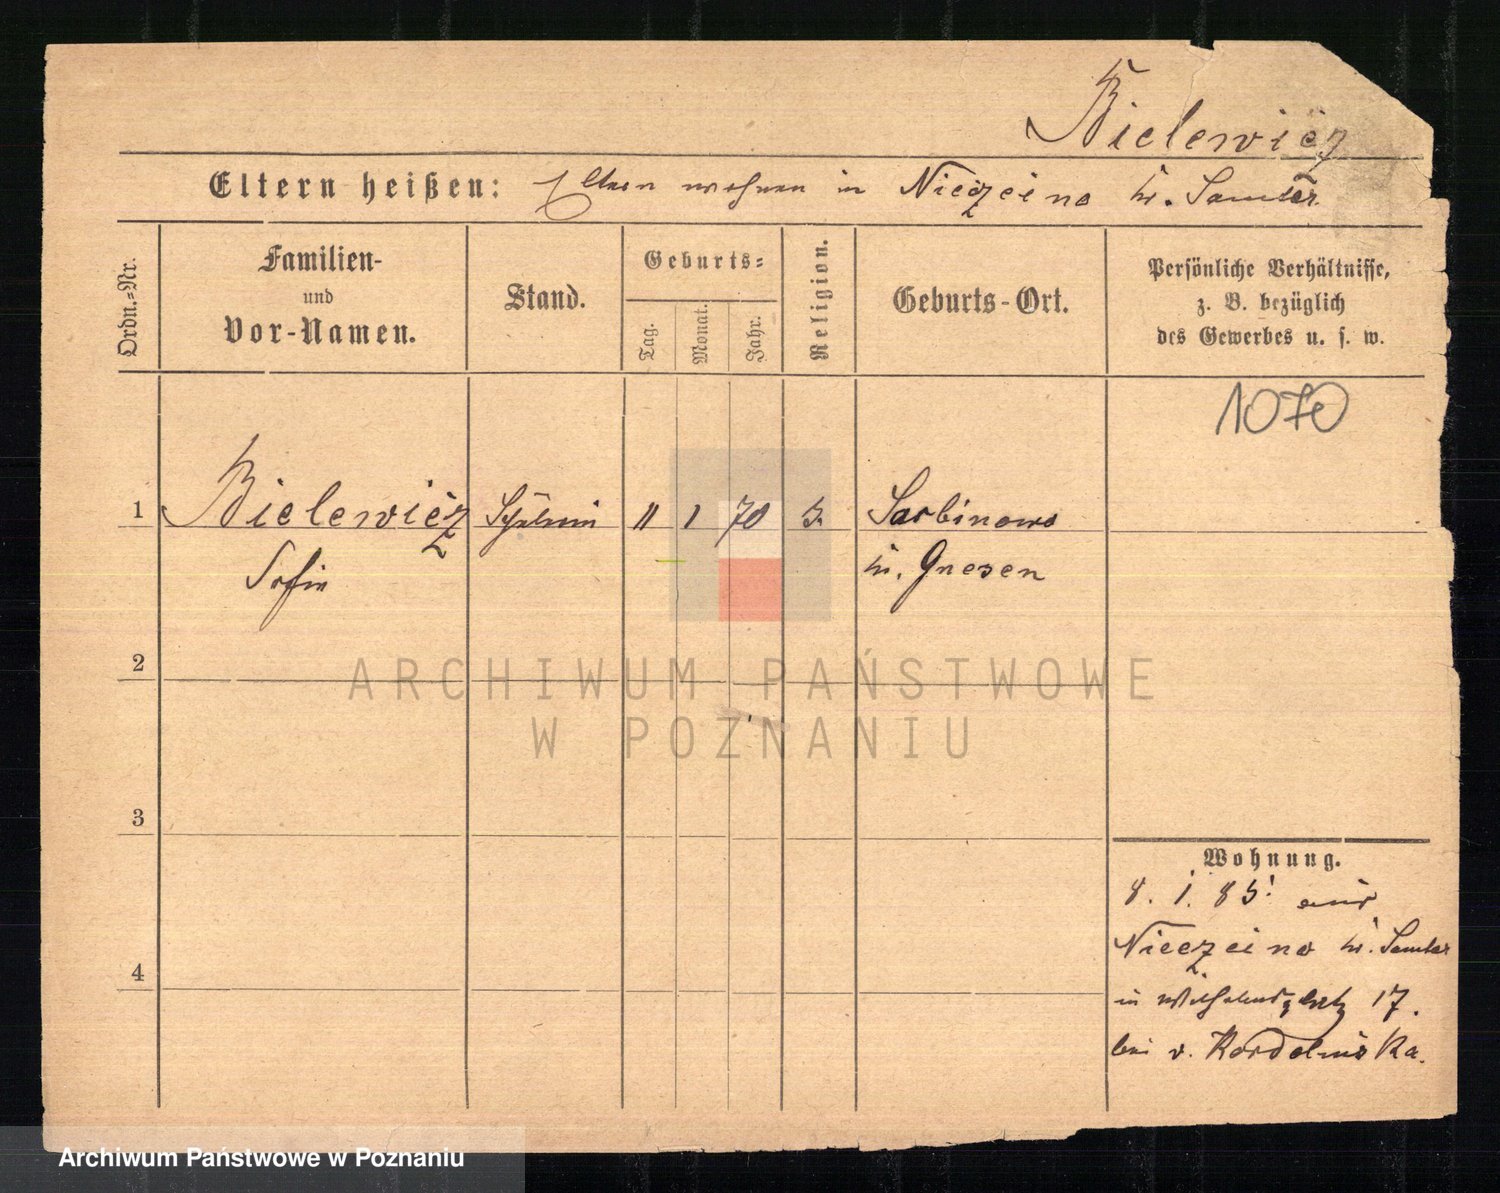 Bielewicz
Eltern heißen: Eltern wohnen in Niećzeina kr. Samter
Ordn.=Nr.
Familien- und Vor-Namen.
Stand.
Geburts=
Tag.
Monat.
Jahr.
Religion.
Geburts-Ort.
Persönliche Verhältnisse,
z. B. bezüglich
des Gewerbes u. s. w.
1070
1 Bielewicz Schülerin 11 1 70 Sarbinowo
Sofie kr. Gnesen
2
3
4
Wohnung.
8. 1. 85: aus
Niećzeina kr. Samter
in Wilhelmsplatz 17.
bei v.
ARCHIWUM PAŃSTWOWE
W POZNANIU
Archiwum Państwowe w Poznaniu